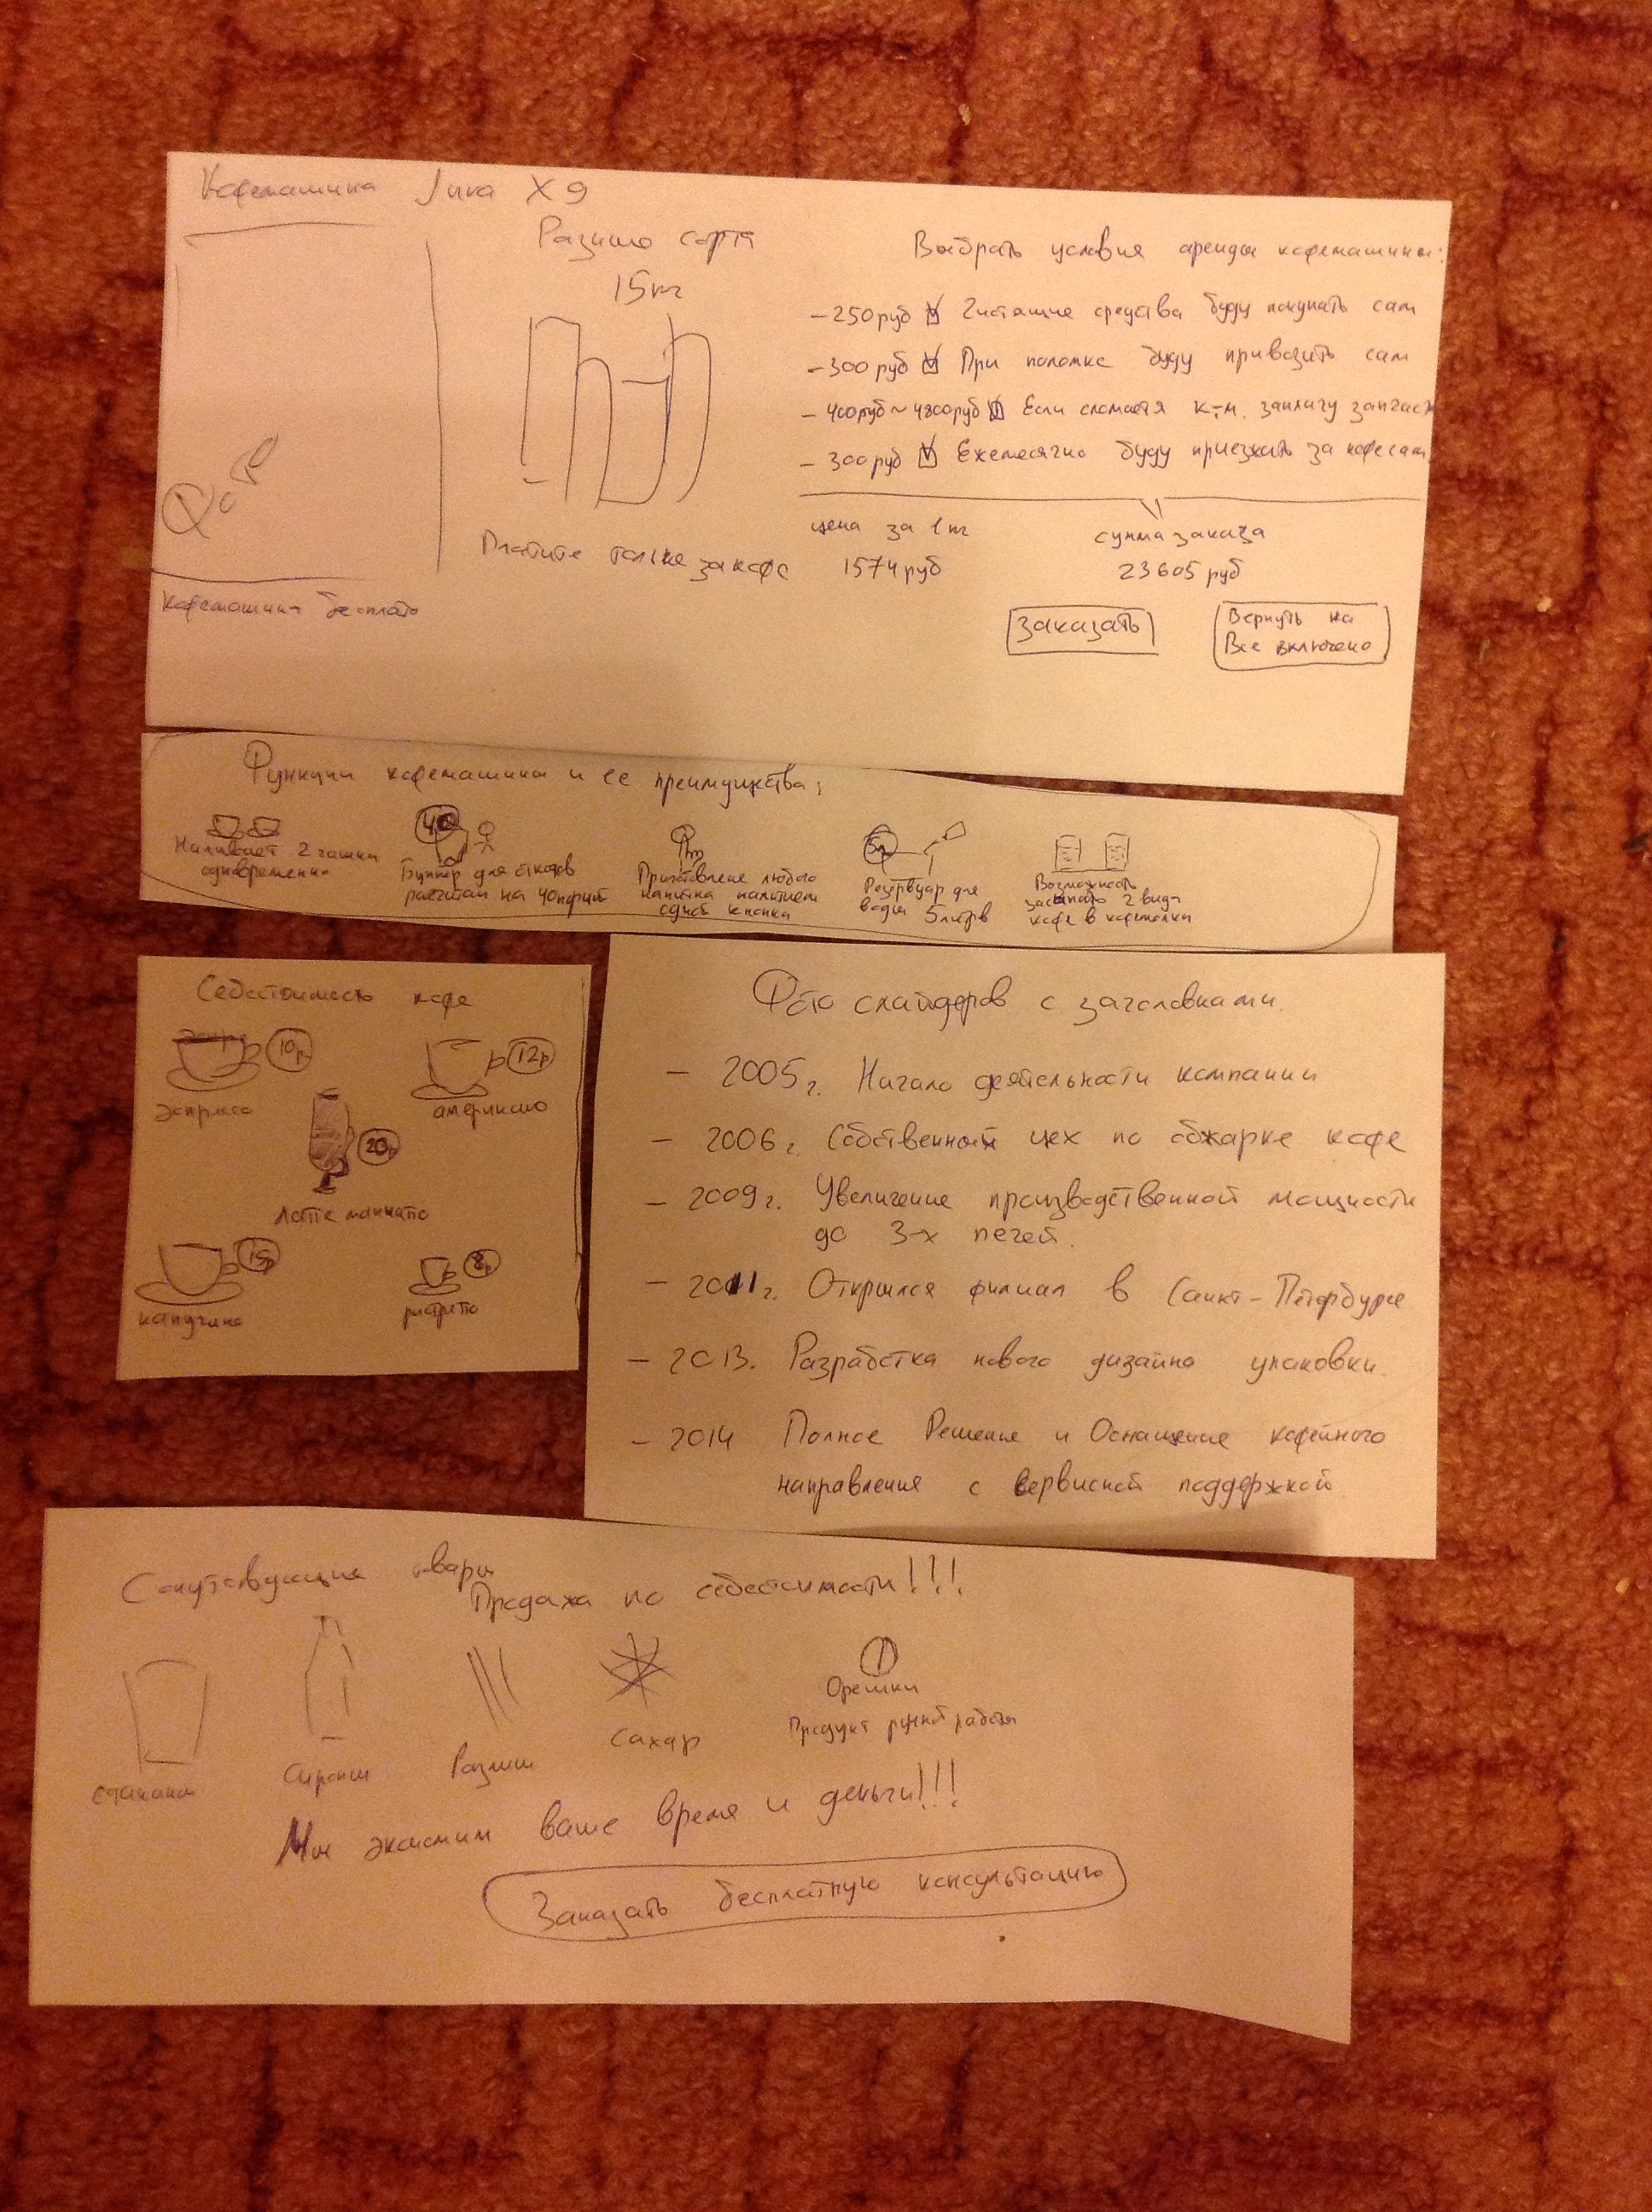 Кофемашина Jura X9
Разные сорта
15кг
Выбрать условия аренды кофемашины:
- 250руб Чистящие средства буду покупать сам
- 300руб При поломке буду привозить сам
- 400руб ~ 4800руб Если сломается к-м. заплачу запчаст
- 300руб Ежемесячно буду приезжать за кофе сам
Платите только за кофе
цена за 1кг
1574руб
сумма заказа
23605руб
Кофемашина бесплатно
Заказать
Вернуть на
Все включено
Функции кофемашины и ее преимущества:
Наливает 2 чашки
одновременно
40
Бункер для отходов
расчитан на 40порций
Приготовление любого
напитка нажатием
одной кнопки
5л
Резервуар для
воды 5литров
Возможность
засыпать 2 вида
кофе в кофемолки
Себестоимость кофе
10р
эспрессо
12р
американо
20р
Латте маккиато
15р
капучино
8р
ристрето
Фото слайдеров с заголовками.
- 2005г. Начало деятельности компании
- 2006г. Собственный цех по обжарке кофе
- 2009г. Увеличение производственной мощности
до 3-х печей.
- 2011г. Открылся филиал в Санкт-Петербурге
- 2013. Разработка нового дизайна упаковки.
- 2014 Полное Решение и Оснащение кофейного
направления с сервисной поддержкой.
Сопутсвующие товары
Продажа по себестоимости!!!
стаканы
Сиропы
Размеш
Сахар
Орешки
Продукт ручной работы
Мы экономим ваше время и деньги!!!
Заказать бесплатную консультацию